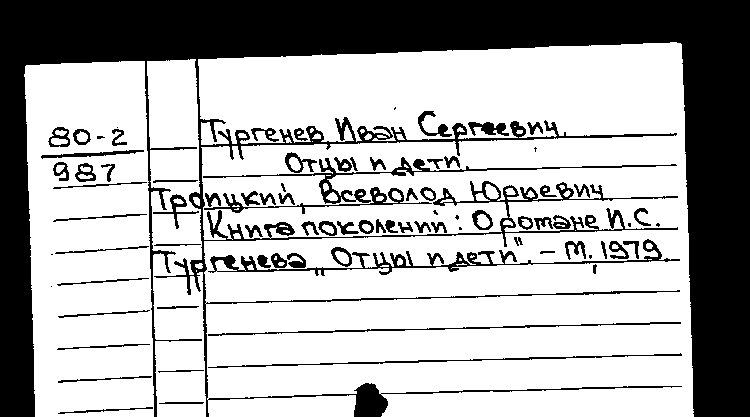 80-2
987
Тургенев, Иван Сергеевич.
Отцы и дети.
Троицкий, Всеволод Юрьевич
Книга поколений: О романе И.С.
Тургенева „Отцы и дети". – М. 1979.